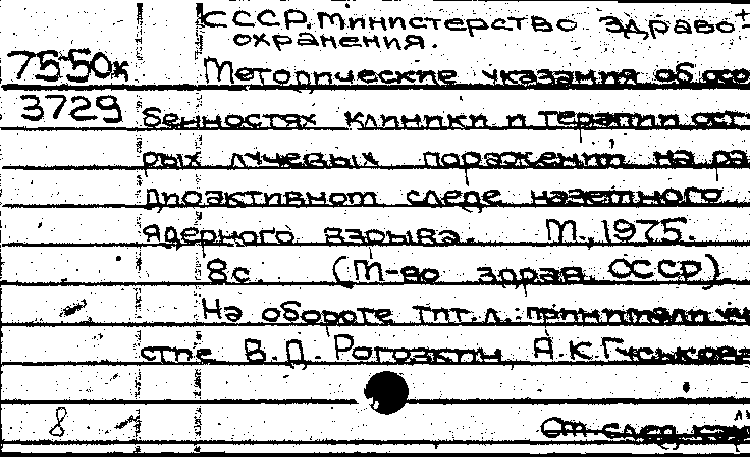 СССР. Министерство здраво-
охранения.
7550к
Методические указания об осо
3729
бенностях клиники и терапии ост
рых лучевых поражений на ра
диоактивном следе наземного
ядерного взрыва. М., 1975.
8с. (М-во здрав. СССР)
На обороте тит. л.: принимали уч
стие В.Д. Рогозкин, А.К. Гуськова
8
От след